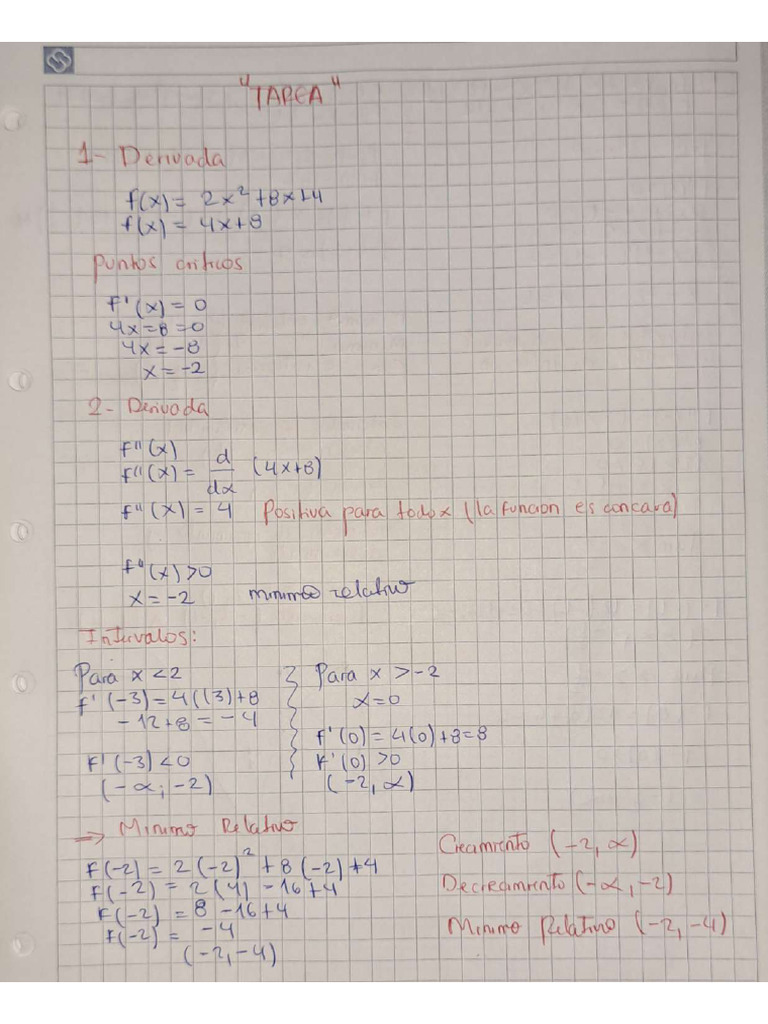 "TAREA"
1- Derivada
f(x) = 2x² + 8x + 4
f(x) = 4x+8
Puntos criticos
f'(x) = 0
4x=8=0
4x = -8
x = -2
2- Derivada
f''(x)
f''(x) = d/dx (4x+8)
f''(x) = 4 Positiva para todo x (la funcion es concava)
f''(x) >0
x = -2 minimo relativo
Intervalos:
Para x < 2
f'(-3) = 4((3)+8
-12+8 = -4
f'(-3) < 0
(-α; -2)
Para x > -2
x = 0
f'(0) = 4(0)+8=8
f'(0) >0
(-2, α)
=> Minimo Relativo
f(-2) = 2(-2)² + 8(-2)+4
f(-2) = 2(4) - 16+4
f(-2) = 8 - 16+4
f(-2) = -4
(-2, -4)
Creamiento (-2, α)
Decreamiento (-α, -2)
Minimo Relativo (-2, -4)